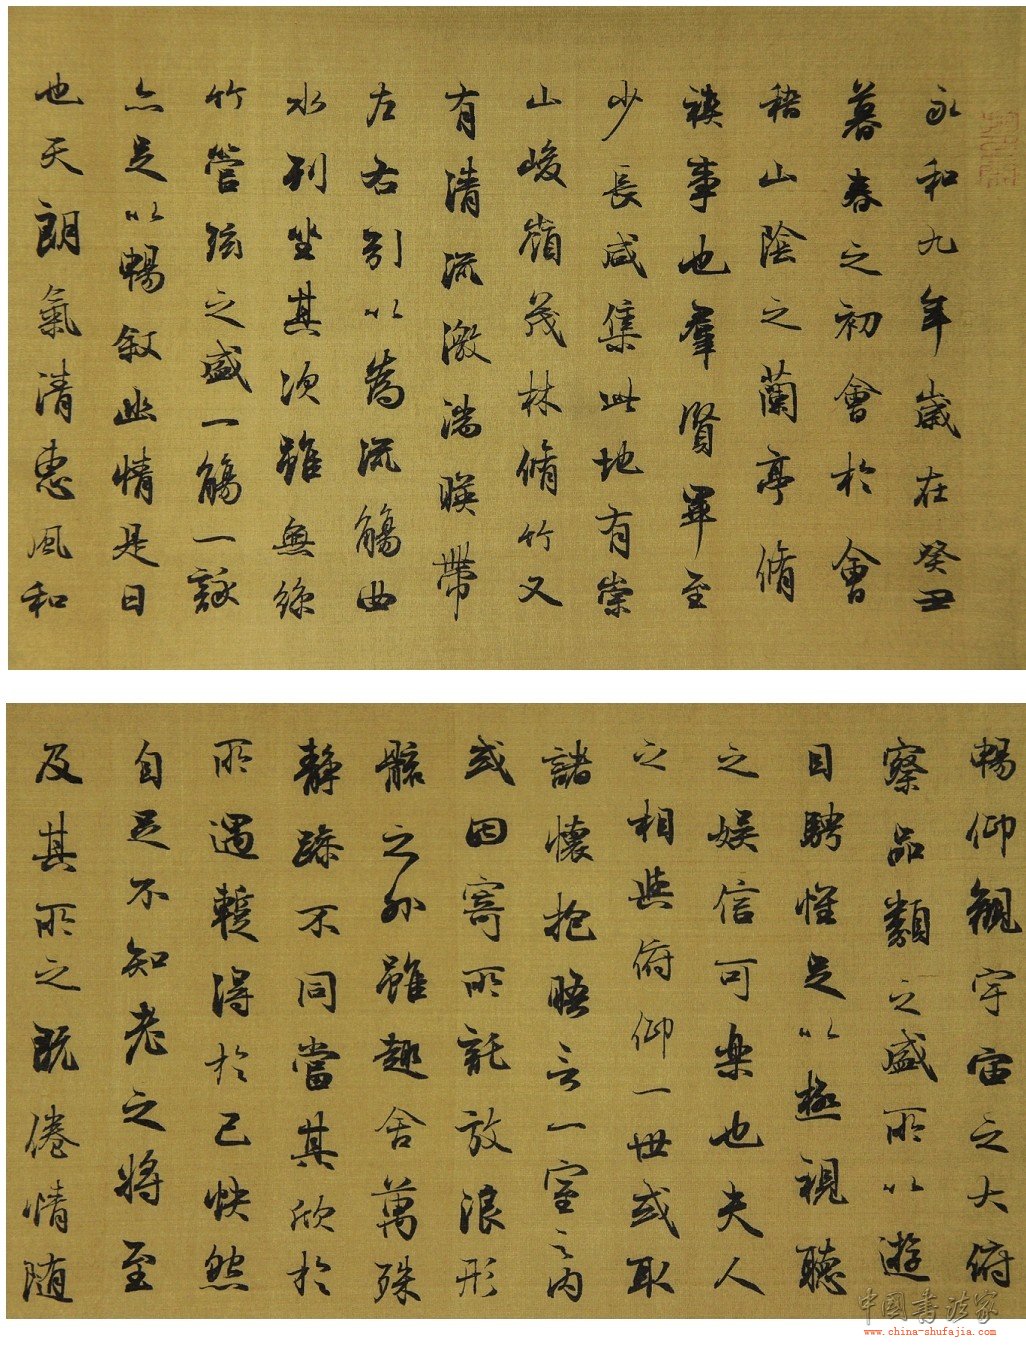 永和九年歲在癸丑
暮春之初會於會
稽山陰之蘭亭脩
禊事也羣賢畢至
少長咸集此地有崇
山峻嶺茂林脩竹又
有清流激湍暎帶
左右引以為流觴曲
水列坐其次雖無絲
竹管弦之盛一觴一詠
亦足以暢敘幽情是日
也天朗氣清惠風和
暢仰觀宇宙之大俯
察品類之盛所以遊
目騁懷足以極視聽
之娛信可樂也夫人
之相與俯仰一世或取
諸懷抱晤言一室之內
或因寄所託放浪形
骸之外雖趣舍萬殊
靜躁不同當其欣於
所遇蹔得於己快然
自足不知老之將至
及其所之既倦情隨
中国书法家
www.china-shufajia.com